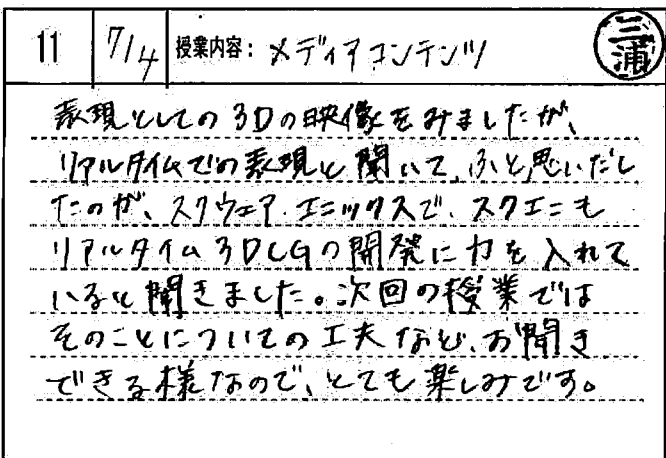 11 7/4 授業内容: メディアコンテンツ 三浦
表現としての3Dの映像をみましたが、
リアルタイムでの表現と聞いて、ふと思いだし
たのが、スクウェア・エニックスで、スクエニも
リアルタイム3DCGの開発に力を入れて
いると聞きました。次回の授業では
そのことについての工夫など、お聞き
できる様なので、とても楽しみです。